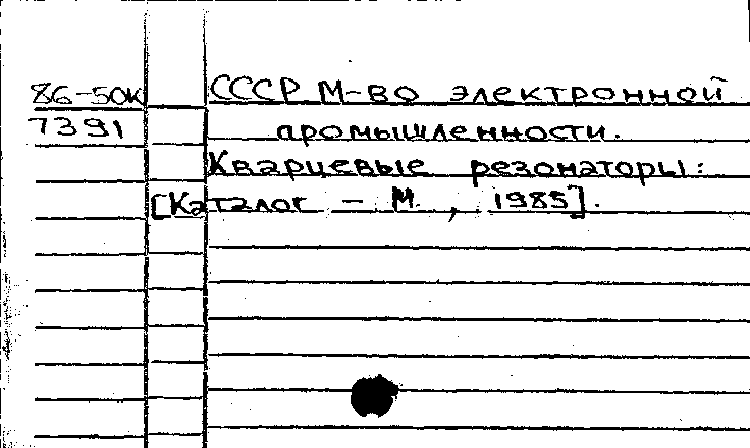 86-50К СССР М-во электронной
7391 промышленности.
Кварцевые резонаторы:
[Каталог - М. , 1985].